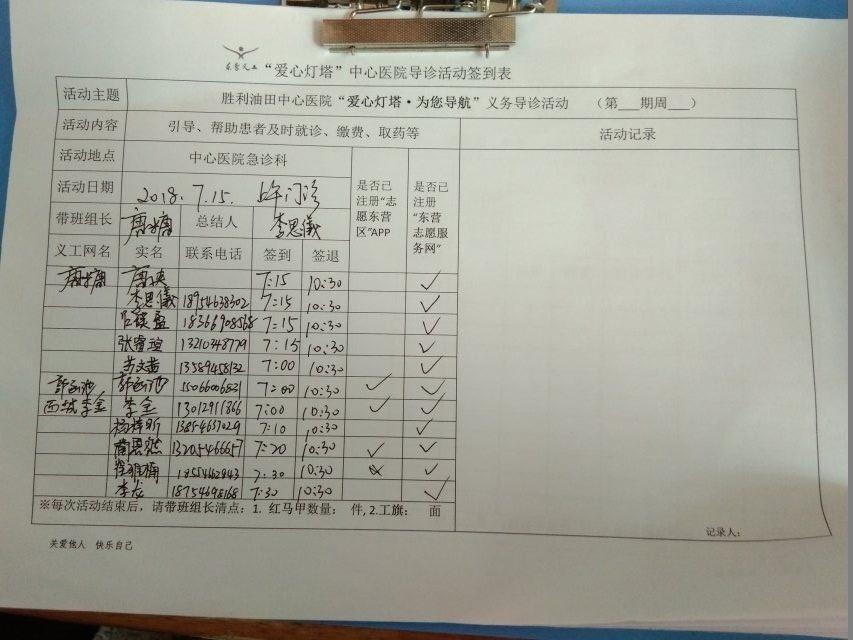 “爱心灯塔”中心医院导诊活动签到表
活动主题 胜利油田中心医院“爱心灯塔·为您导航”义务导诊活动 （第___期周___）
活动内容 引导、帮助患者及时就诊、缴费、取药等 活动记录
活动地点 中心医院急诊科
活动日期 2018.7.15. 门诊
是否已注册“志愿东营区”APP
是否已注册“东营志愿服务网”
带班组长 总结人 李思儀
义工网名 实名 联系电话 签到 签退
7:15 10:30 ✓
李思儀 18954638302 7:15 10:30 ✓
18366908568 7:15 10:30 ✓
张睿瑄 13210348779 7:15 10:30 ✓
13589458132 7:00 10:30 ✓
15066006831 7:00 10:30 ✓ ✓
西城李金 李金 13012911866 7:00 10:30 ✓ ✓
13854657029 7:10 10:30 ✓
13205466657 7:20 10:30 ✓ ✓
7:30 10:30 ✓
李龙 18754698168 7:30 10:30 ✓
※每次活动结束后，请带班组长清点：1. 红马甲数量： 件, 2.工旗： 面
记录人：
关爱他人 快乐自己